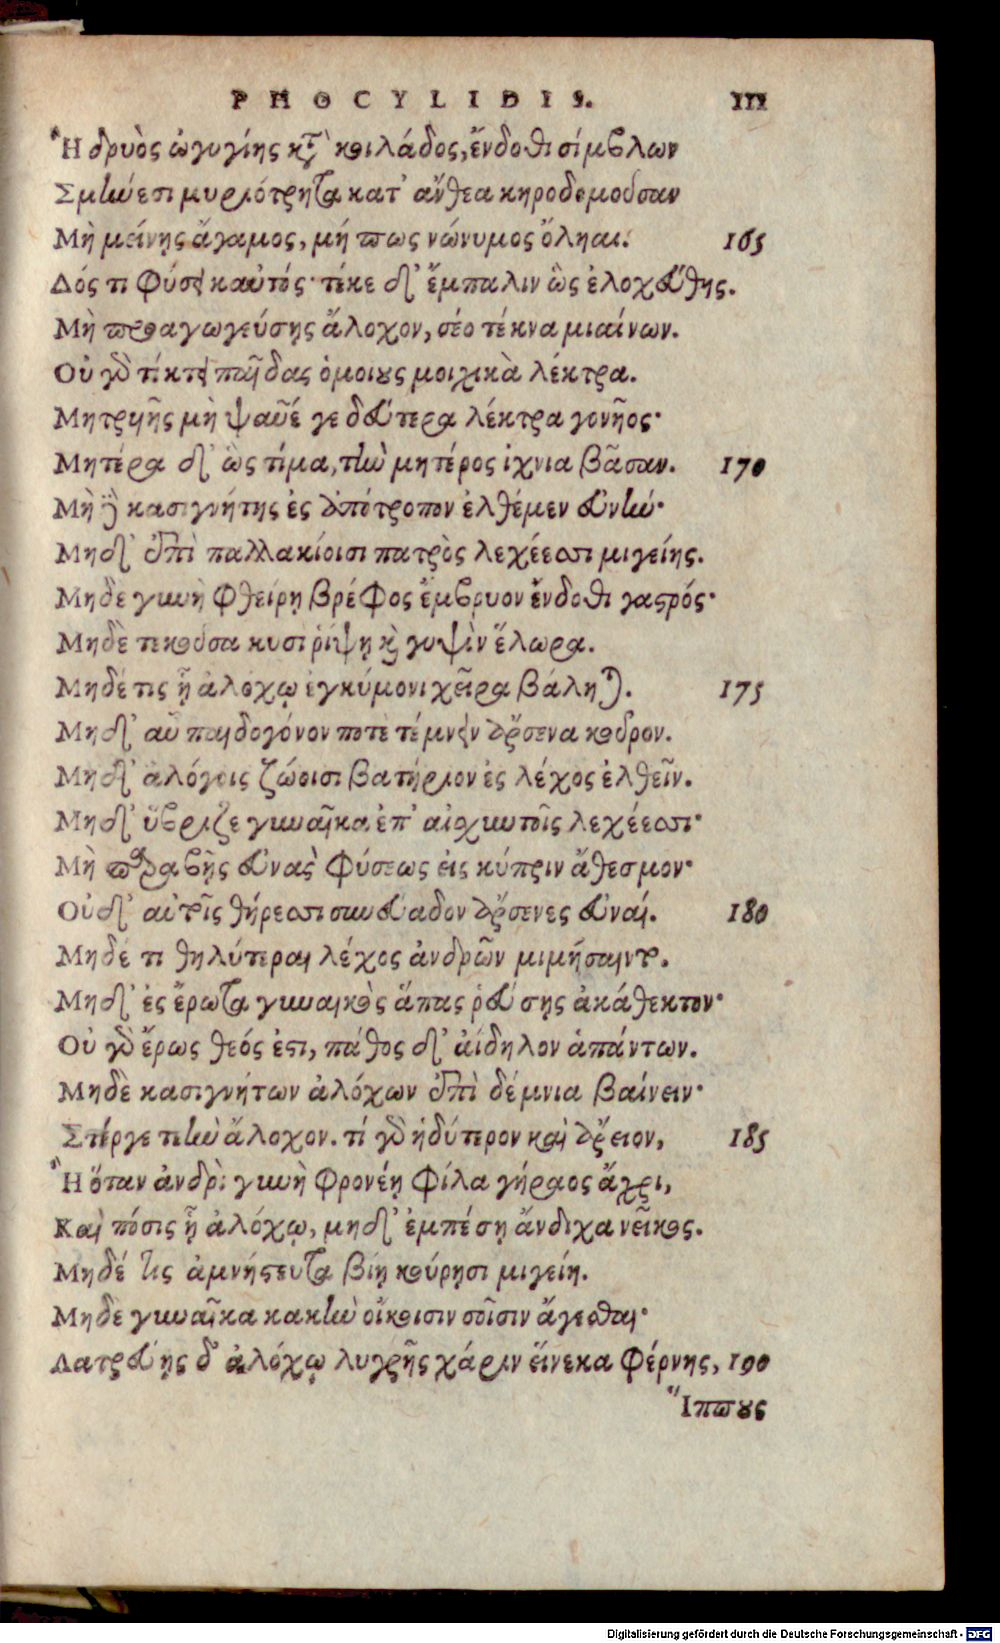 PHOCYLIDIS. 111
Ἢ δρυὸς ὠγυγίης κατὰ κοιλάδος, ἔνδοθι σίμβλων
Σμήνεσι μυριότρητα κατ' ἄνθεα κηροδομοῦσαν
Μὴ μείνῃς ἄγαμος, μή πως νώνυμος ὄληαι. 165
Δός τι φύσει καὐτός· τίκε δ' ἔμπαλιν ὡς ἐλοχεύθης.
Μὴ προαγωγεύσῃς ἄλοχον, σέο τέκνα μιαίνων.
Οὐ γὰρ τίκτει παῖδας ὁμοίους μοιχικὰ λέκτρα.
Μητρυιῆς μὴ ψαῦέ γε δεύτερα λέκτρα γονῆος·
Μητέρα δ' ὣς τίμα, τὴν μητέρος ἴχνια βᾶσαν. 170
Μὴ δὲ κασιγνήτης ἐς ἀπότροπον ἐλθέμεν εὐνήν·
Μηδ' ἐπὶ παλλακίοισι πατρὸς λεχέεσσι μιγείης.
Μηδὲ γυνὴ φθείρῃ βρέφος ἔμβρυον ἔνδοθι γαστρός·
Μηδὲ τεκοῦσα κυσὶ ῥίψῃ καὶ γυψὶν ἕλωρα.
Μηδέ τις ᾗ ἀλόχῳ ἐγκύμονι χεῖρα βάληται. 175
Μηδ' αὖ παιδογόνον ποτὲ τέμνειν ἄρσενα κοῦρον.
Μηδ' ἀλόγοις ζώοισι βατήριον ἐς λέχος ἐλθεῖν.
Μηδ' ὕβριζε γυναῖκα ἐπ' αἰσχυντοῖς λεχέεσσι·
Μὴ παραβῇς εὐνὰς φύσεως εἰς κύπριν ἄθεσμον·
Οὐδ' αὐτοῖς θήρεσσι συνεύαδον ἄρσενες εὐναί. 180
Μηδέ τι θηλύτεραι λέχος ἀνδρῶν μιμήσαιντο.
Μηδ' ἐς ἔρωτα γυναικὸς ἅπας ῥεύσῃς ἀκάθεκτον·
Οὐ γὰρ ἔρως θεός ἐστι, πάθος δ' ἀίδηλον ἁπάντων.
Μηδὲ κασιγνήτων ἀλόχων ἐπὶ δέμνια βαίνειν·
Στέργε τεὴν ἄλοχον. τί γὰρ ἡδύτερον καὶ ἄρειον, 185
Ἢ ὅταν ἀνδρὶ γυνὴ φρονέῃ φίλα γήραος ἄχρι,
Καὶ πόσις ᾗ ἀλόχῳ, μηδ' ἐμπέσῃ ἄνδιχα νεῖκος.
Μηδέ τις ἀμνήστευτα βίῃ κούρῃσι μιγείη.
Μηδὲ γυναῖκα κακὴν οἴκοισιν σοῖσιν ἄγεσθαι·
Λατρεύῃς δ' ἀλόχῳ λυγρῆς χάριν εἵνεκα φέρνης, 190
Ἵππους
Digitalisierung gefördert durch die Deutsche Forschungsgemeinschaft - DFG